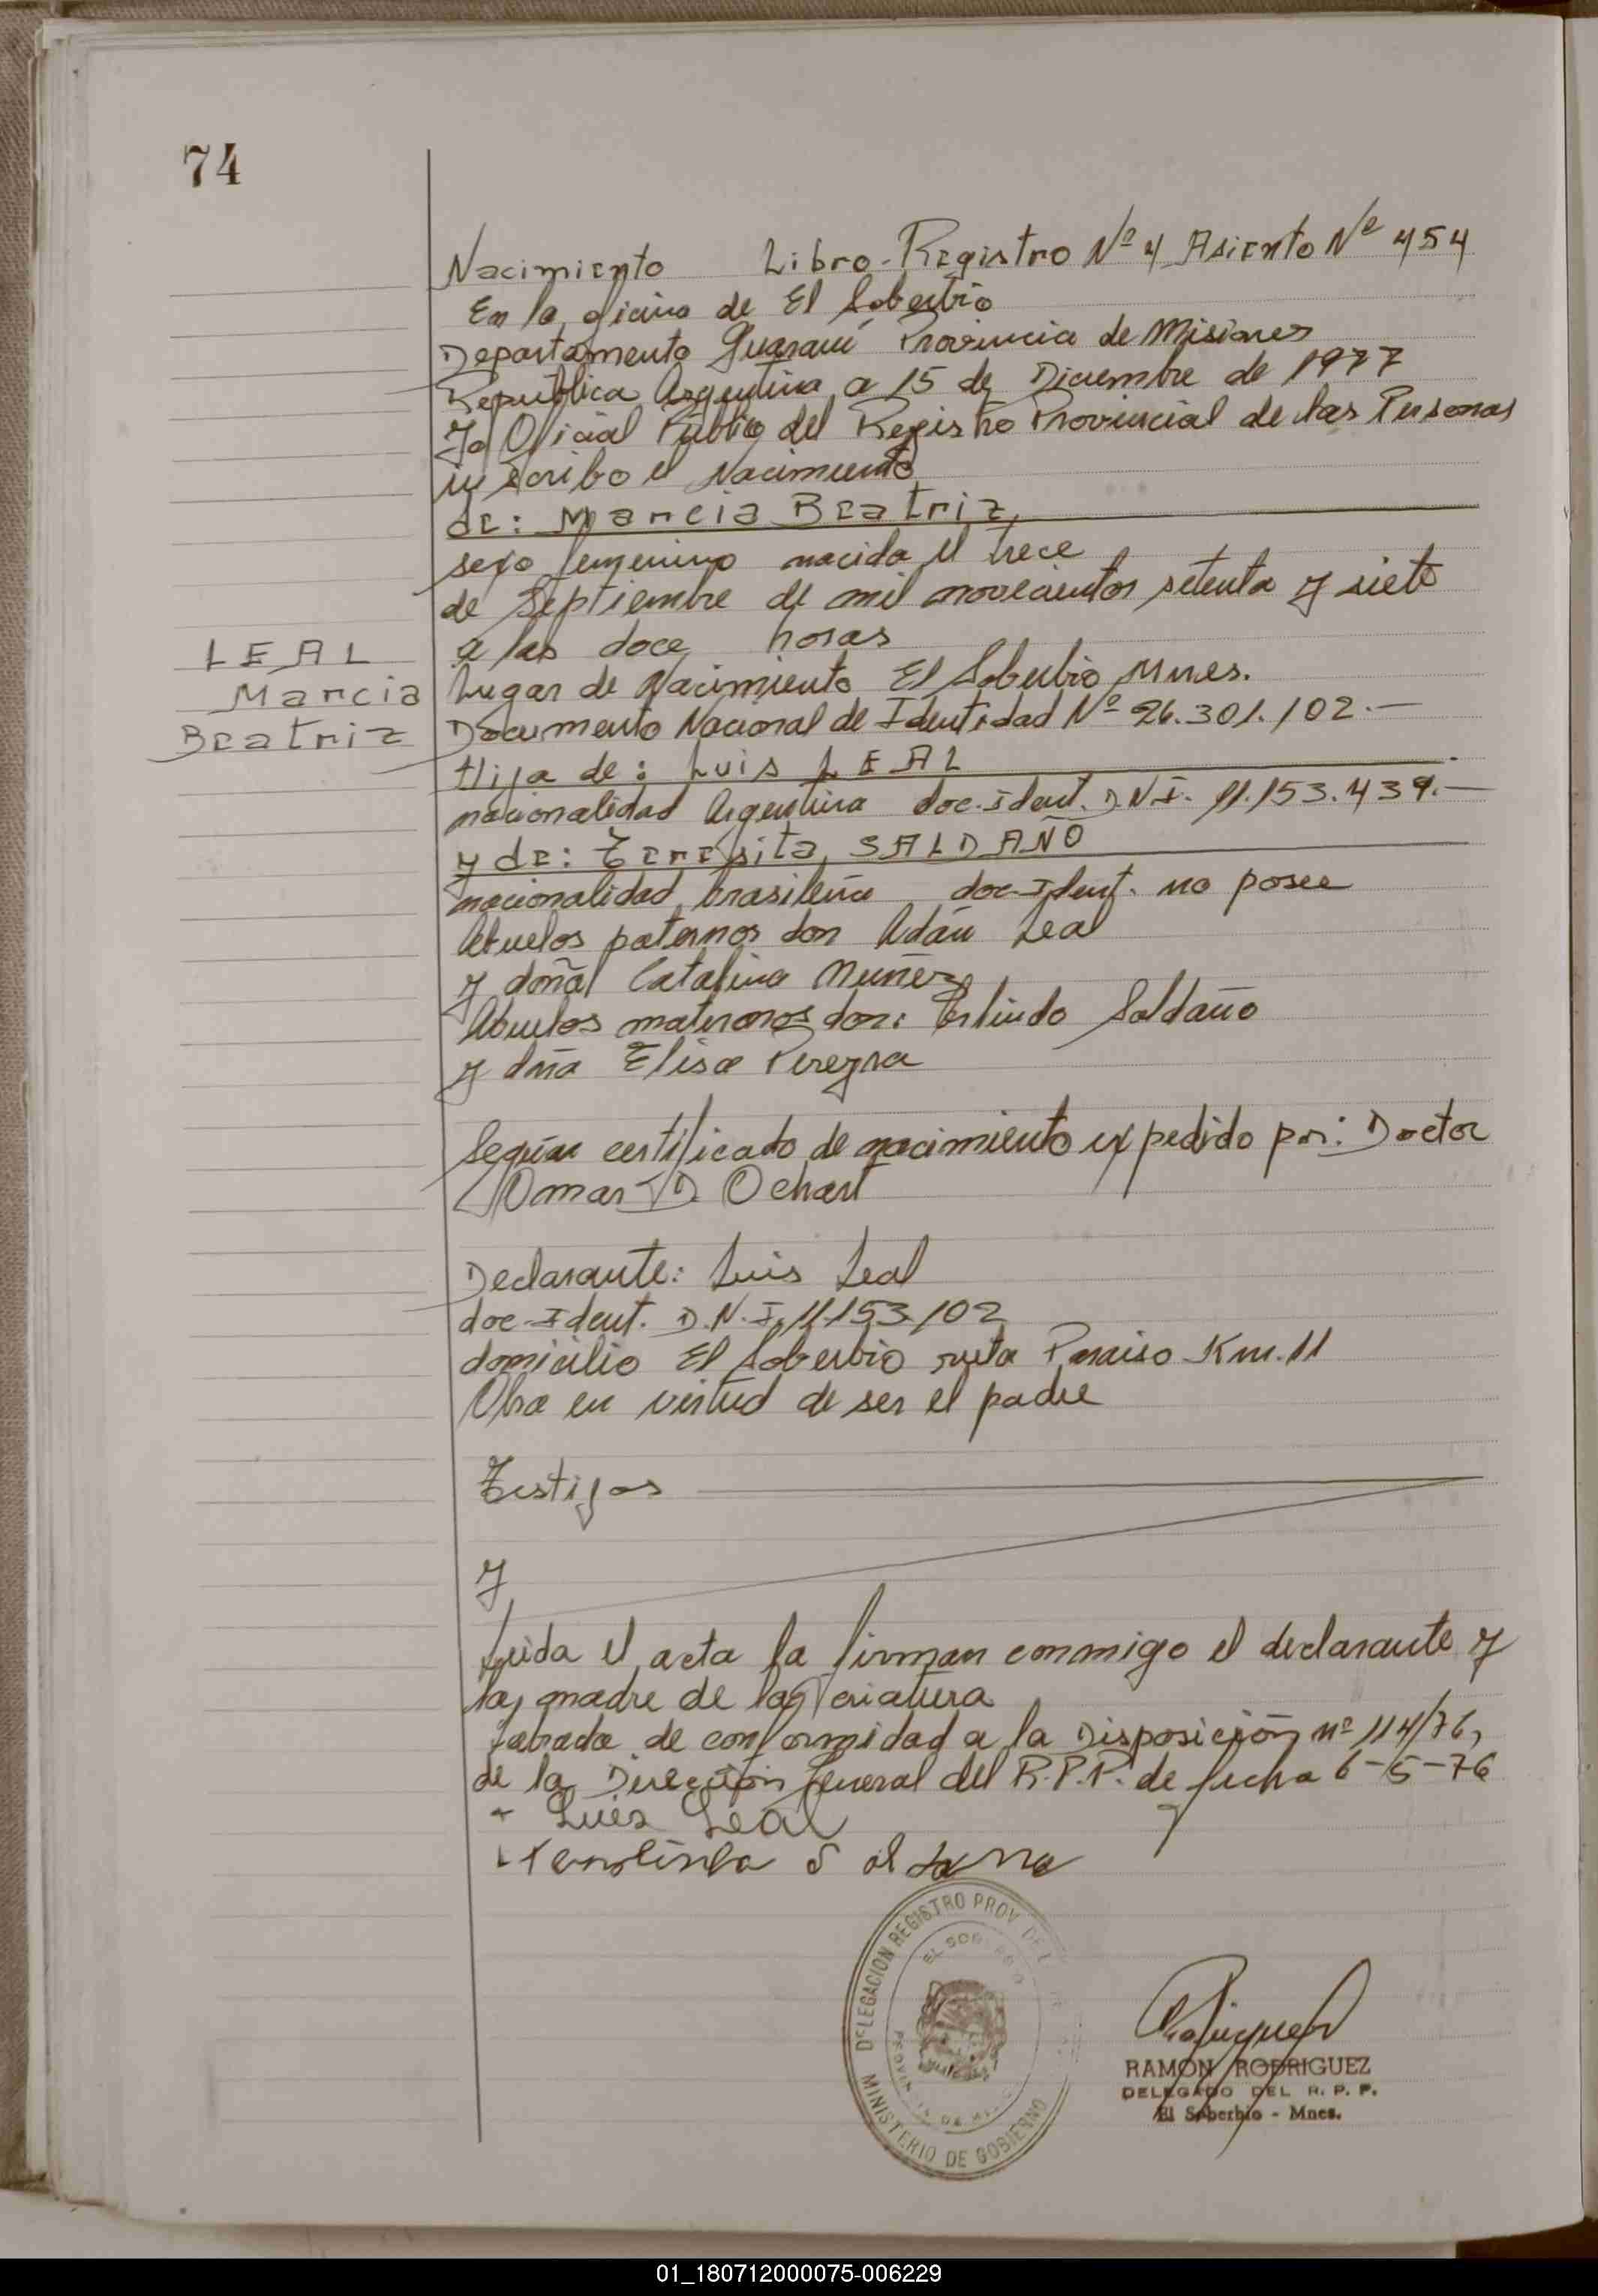 74
Nacimiento Libro-Registro Nº 4 Asiento Nº 454
En la oficina de El Soberbio
Departamento Guaraní Provincia de Misiones
Republica Argentina a 15 de Diciembre de 1977
Yo Oficial Público del Registro Provincial de las Personas
inscribo el Nacimiento
de: Marcia Beatriz
sexo femenino nacida el trece
de Septiembre de mil novecientos setenta y siete
a las doce horas
LEAL
Marcia
Beatriz
Lugar de Nacimiento El Soberbio Mnes.
Documento Nacional de Identidad Nº 26.301.102.—
Hija de: Luis LEAL
nacionalidad Argentina doc.Ident. D.N.I. 11.153.439.—
y de: Teresita SALDAÑO
nacionalidad brasileña doc-Ident. no posee
Abuelos paternos don Adán Leal
y doña Catalina Muñez
Abuelos maternos don: Erlindo Saldaño
y dña Elisa Pereyra
Según certificado de nacimiento expedido por: Doctor
Omar D. Ochart
Declarante: Luis Leal
doc-Ident. D.N.I. 11.153.102
domicilio El Soberbio ruta Paraiso Km. 11
Obra en virtud de ser el padre
Testigos
y
Leida el acta la firman conmigo el declarante y
la madre de la criatura
Labrada de conformidad a la Disposición nº 114/76,
de la Dirección General del R.P.P. de fecha 6-5-76
Luis Leal
DELEGACION REGISTRO PROV. DE L
EL SOBERBIO
MINISTERIO DE GOBIERNO
RAMON RODRIGUEZ
DELEGADO DEL R. P. P.
El Soberbio - Mnes.
01_180712000075-006229